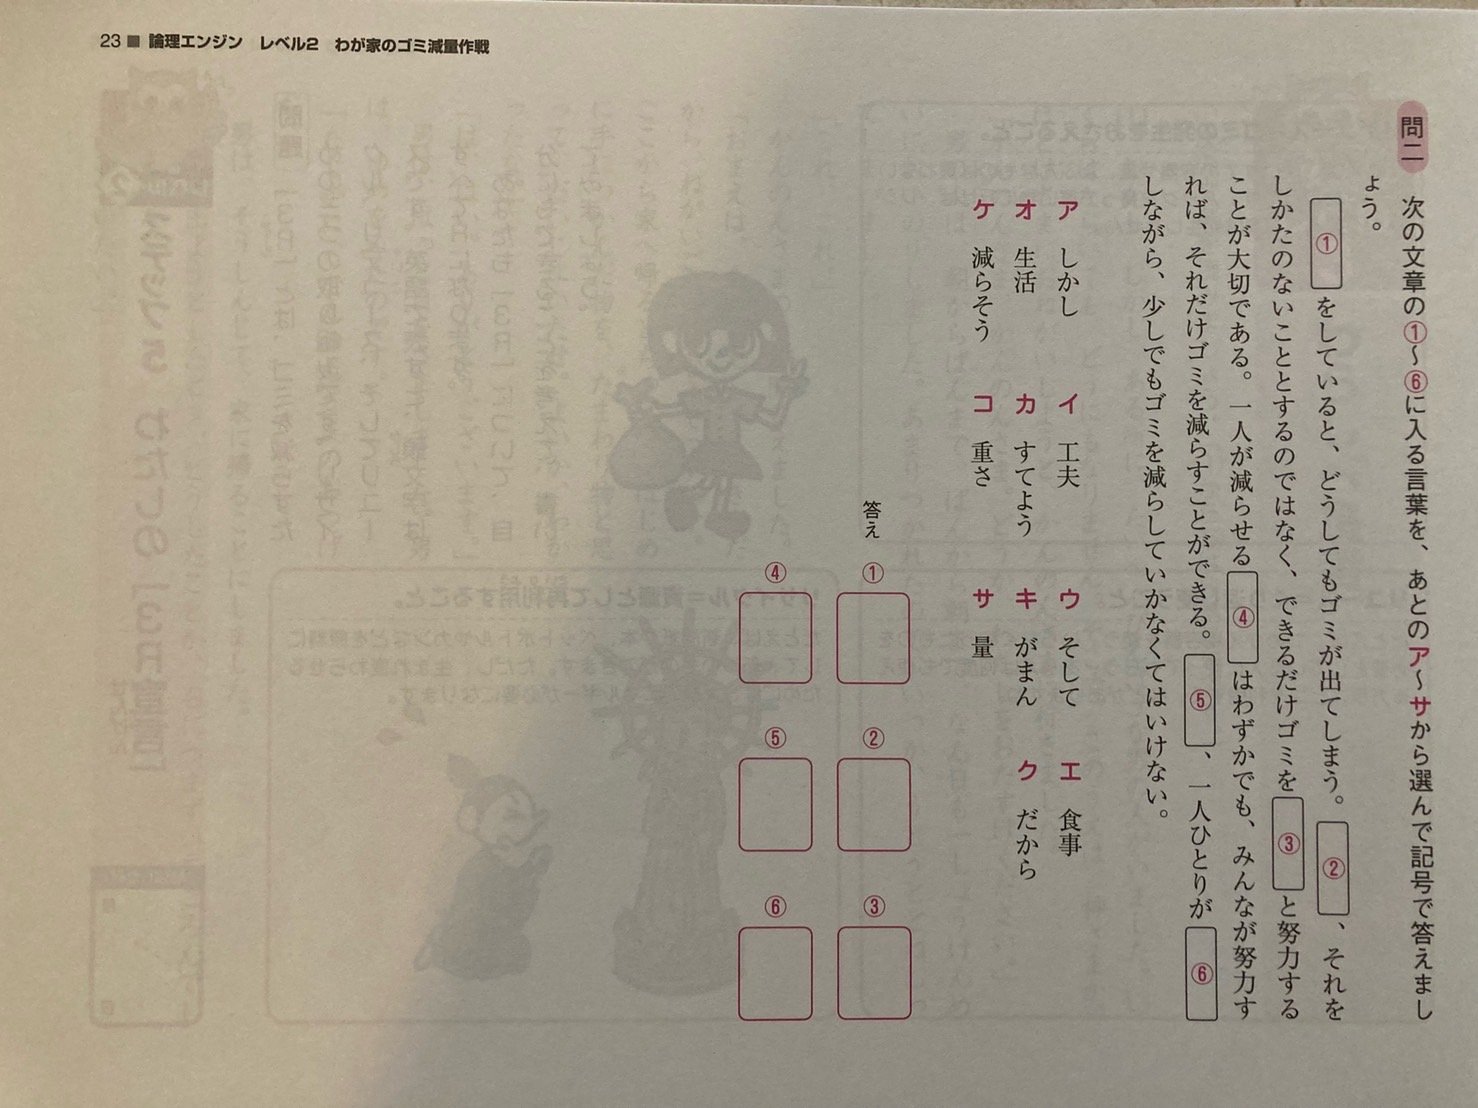 23 ■ 論理エンジン　レベル2　わが家のゴミ減量作戦
問二　次の文章の①〜⑥に入る言葉を、あとのア〜サから選んで記号で答えまし
ょう。
①をしていると、どうしてもゴミが出てしまう。②、それを
しかたのないこととするのではなく、できるだけゴミを③と努力する
ことが大切である。一人が減らせる④はわずかでも、みんなが努力す
れば、それだけゴミを減らすことができる。⑤、一人ひとりが⑥
しながら、少しでもゴミを減らしていかなくてはいけない。
ア　しかし　イ　工夫　ウ　そして　エ　食事
オ　生活　カ　すてよう　キ　がまん　ク　だから
ケ　減らそう　コ　重さ　サ　量
答え　①　②　③
④　⑤　⑥